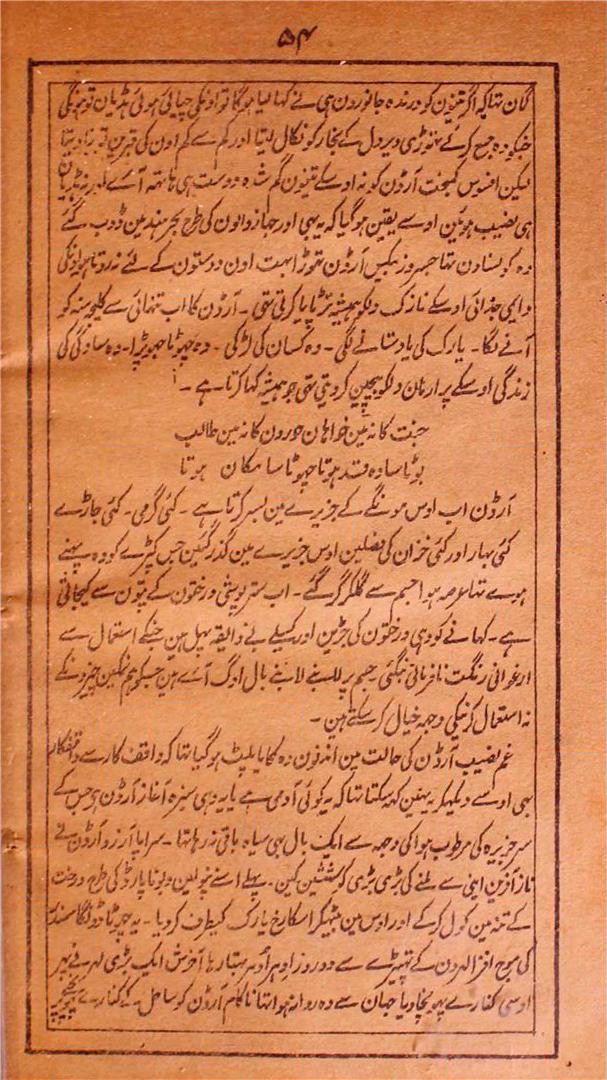 ۵۴
گمان تہا کہ اگر تینون کو درندہ جانورون ہی نے کہا لیا ہوگا تو اونکی چبائی ہوئی ہڈیان تو ہونگی
جنکو وہ جمع کر کے تہوڑی دیر دل کے بخار کو نکال لیتا اور کم سے کم اون کی قبرین تو بنا دیتا
لیکن افسوس کمبخت آرڈن کو نہ اوسکے تینون گم شدہ دوست ہی ہاتھہ آئے اور نہ ہڈیان
ہی نصیب ہوئین اوسے یقین ہوگیا کہ یہ بہی اور جہاز والون کی طرح بحر ہند مین ڈوب گئے
وہ کونسا دن تہا جس روز بیکس آرڈن تہوڑا بہت اون دوستون کے لئے نہ روتا ہو اونکی
دایمی جدائی اوسکے نازک دلکو ہمیشہ تڑپایا کرتی تہی ۔ آرڈن کا اب تنہائی سے کلیجہ منہ کو
آنے لگا ۔ یارک کی یاد ستانے لگی ۔ وہ کسان کی لڑکی ۔ وہ چہوٹا جہوپڑا ۔ وہ سادگی کی
زندگی اوسکے پر ارمان دلکو بیچین کر دیتی تہی جو ہمیشہ کہا کرتا ہے ۔
جنت کا نہ مین خواہان حورون کا نہ مین طالب
بوٹا سا وہ قد ہوتا چہوٹا سا مکان ہوتا
آرڈن اب اوس مونگے کے جزیرے مین بسر کرتا ہے ۔ کئی گرمی ۔ کئی جاڑے
کئی بہار اور کئی خزان کی فصلین اوس جزیرے مین گذر گئین جس کپڑے کو وہ پہنے
ہوے تہا عرصہ ہوا جسم سے گلکر گر گئے ۔ اب ستر پوشی درختون کے پتون سے کیجاتی
ہے ۔ کہانے کو وہی درختون کی جڑین اور کسیلے بے ذائقہ پہل ہین جنکے استعمال سے
ارغوانی رنگت نافرمانی بنگئی جسم پر لانبے لانبے بال اوگ آئے ہین جسکو ہم نمکین چیزونکے
نہ استعمال کرنیکی وجہ خیال کر سکتے ہین ۔
غم نصیب آرڈن کی حالت مین اندنون وہ کایا پلٹ ہوگیا تہا کہ واقف کار سے
بہی اوسے دیکہکر یہ نہین کہہ سکتا تہا کہ یہ کوئی آدمی ہے یا یہ وہی سبزہ آغاز آرڈن ہے جس کے
سر جزیرہ کی مرطوب ہوا کی وجہ سے ایک بال بہی سیاہ باقی نہ رہا تہا ۔ سراپا آرزو آرڈن نے
ناز آفرین اینی سے ملنے کی بڑی بڑی کوششین کین ۔ پہلے اسنے نپولین بونا پارڈ کی طرح درخت
کے تنہ مین کول کرکے اور اوس مین بیٹہکر اسکا رخ یارک کیطرف کر دیا ۔ یہ چہوٹا ڈونگا سمندر
کی موج افزا لہرون کے تہپیڑے سے دو روز اِدہر اُدہر بہتا رہا آخرش ایک بڑی لہر نے پہر
اوسی کنارے پہونچا دیا جہان سے وہ روانہ ہوا تہا ناکام آرڈن کو ساحل کے کنارے